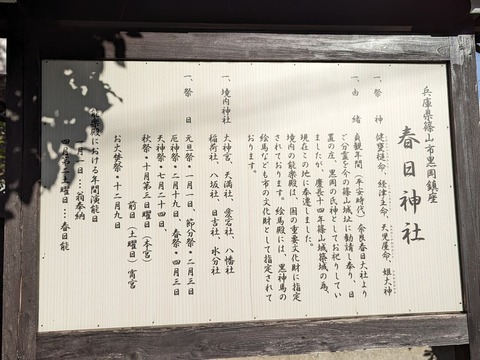 兵庫県篠山市黒岡鎮座
春日神社
一、祭　神　健甕槌命、経津主命、天児屋命、姫大神
一、由　緒　貞観年間（平安時代）奈良春日大社より
ご分霊を今の篠山城址に勧請し奉り、日
置の庄、黒岡の氏神としてお祀りしてい
ましたが、慶長十四年篠山城築城の為、
現在この地に奉遷しました。
境内の能楽殿は、国の重要文化財に指定
されております。絵馬殿には、黒神馬の
絵馬なども市の文化財として指定されて
おります。
一、境内神社　大神宮、天満社、愛宕社、八幡社
稲荷社、八坂社、日吉社、水分社
一、祭　日　元旦祭・一月一日、節分祭・二月三日
厄神祭・二月十九日、春祭・四月三日
天神祭・七月二十四日、
秋祭・十月第三日曜日（本宮）
前日（土曜日）宵宮
お火焚祭・十二月九日
能楽殿における年間演能日
一月一日……翁奉納
四月第二土曜日……春日能